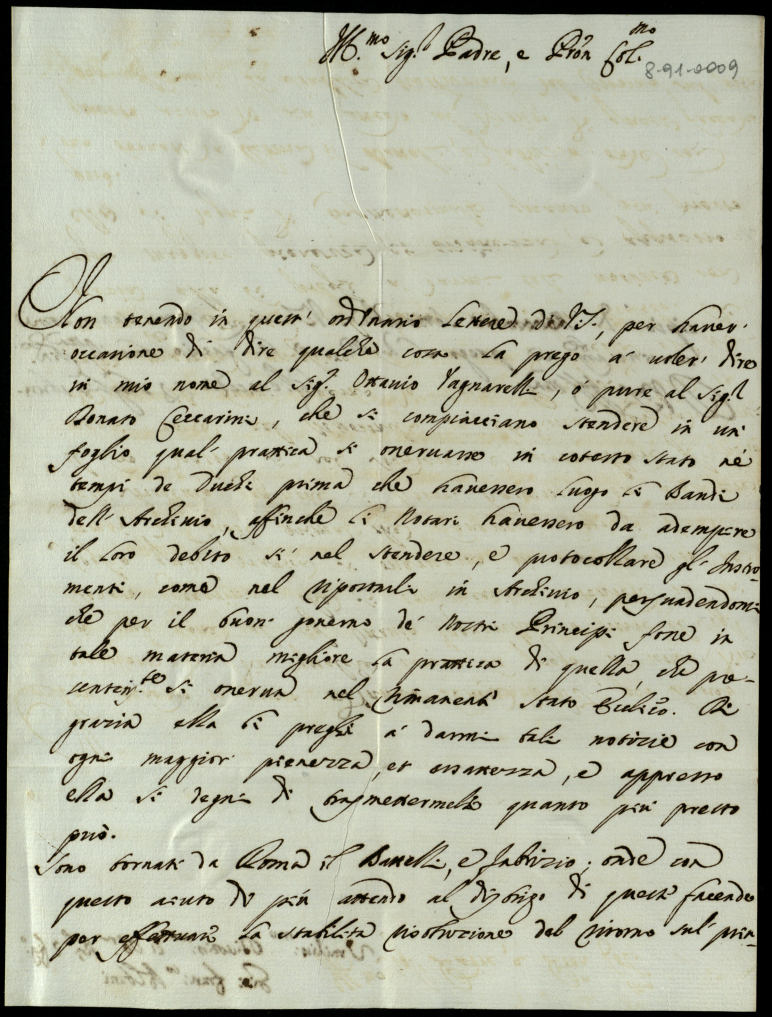 Ill.mo Sig.r Padre, e Pron Col.mo
8-91-0009
Non tenendo in quest' ordinario lettere di V.S., per haver'
occasione di dire qualche cosa la prego a' voler' dire
in mio nome al Sig.r Ottavio Vagnarelli, ó pure al Sig.r
Donato Ceccarini, che si compiacciano stendere in un'
foglio qual' prattica si osservasse in cotesto stato né
tempi de Duchi prima che havessero luogo li Bandi
dell' Archivio, affinche li Notari havessero da adempire
il loro debito sì nel stendere, e protocollare gl' Instro-
menti, come nel riportarli in Archivio, persuadendomi
che per il buon' governo de' nostri Principi fosse in
tale materia migliore la prattica di quella, che pre-
sentem.te si osserva nel rimanente stato Eccl.co. Di
grazia ella li preghi a' darmi tali notizie con
ogni maggior' pienezza, et esattezza, e appresso
ella si degni di trasmettermele quanto più presto
può.
Sono tornati da Roma il Battelli, e Fabrizio; onde con
questo aiuto di più attendo al disbrigo di queste facende
per effettuare la stabilita risoluzione del ritorno sul' prin-